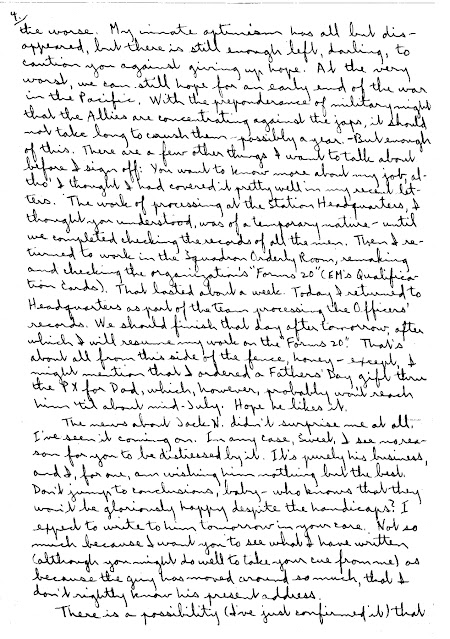 4/
the worse. My innate optimism has all but dis-
appeared, but there is still enough left, darling, to
caution you against giving up hope. At the very
worst, we can still hope for an early end of the war
in the Pacific. With the preponderance of military might
that the Allies are concentrating against the Japs, it should
not take long to crush them - possibly a year. - But enough
of this. There are a few other things I want to talk about
before I sign off. You want to know more about my job, al-
tho' I thought I had covered it pretty well in my recent let-
ters. The work of processing at the Station Headquarters, I
thought you understood, was of a temporary nature - until
we completed checking the records of all the men. Then I re-
turned to work in the Squadron Orderly Room, remaking
and checking the organization's "Forms 20" (EM's Qualifica-
tion Cards). That lasted about a week. Today I returned to
Headquarters as part of the team processing the Officers'
records. We should finish that day after tomorrow, after
which I will resume my work on the "Forms 20". That's
about all from this side of the fence, honey - except, I
might mention that I ordered a Fathers' Day gift thru
the PX for Dad, which, however, probably won't reach
him 'til about mid-July. Hope he likes it.
The news about Jack N. didn't surprise me at all.
I've seen it coming on. In any case, Sweet, I see no rea-
son for you to be distressed by it. It's purely his business,
and I, for one, am wishing him nothing but the best.
Don't jump to conclusions, baby - who knows that they
won't be gloriously happy despite the handicaps? I
expect to write to him tomorrow in your care. Not so
much because I want you to see what I have written
(although you might do well to take your cue from me) as
because the guy has moved around so much, that I
don't rightly know his present address.
There is a possibility (I've just confirmed it) that